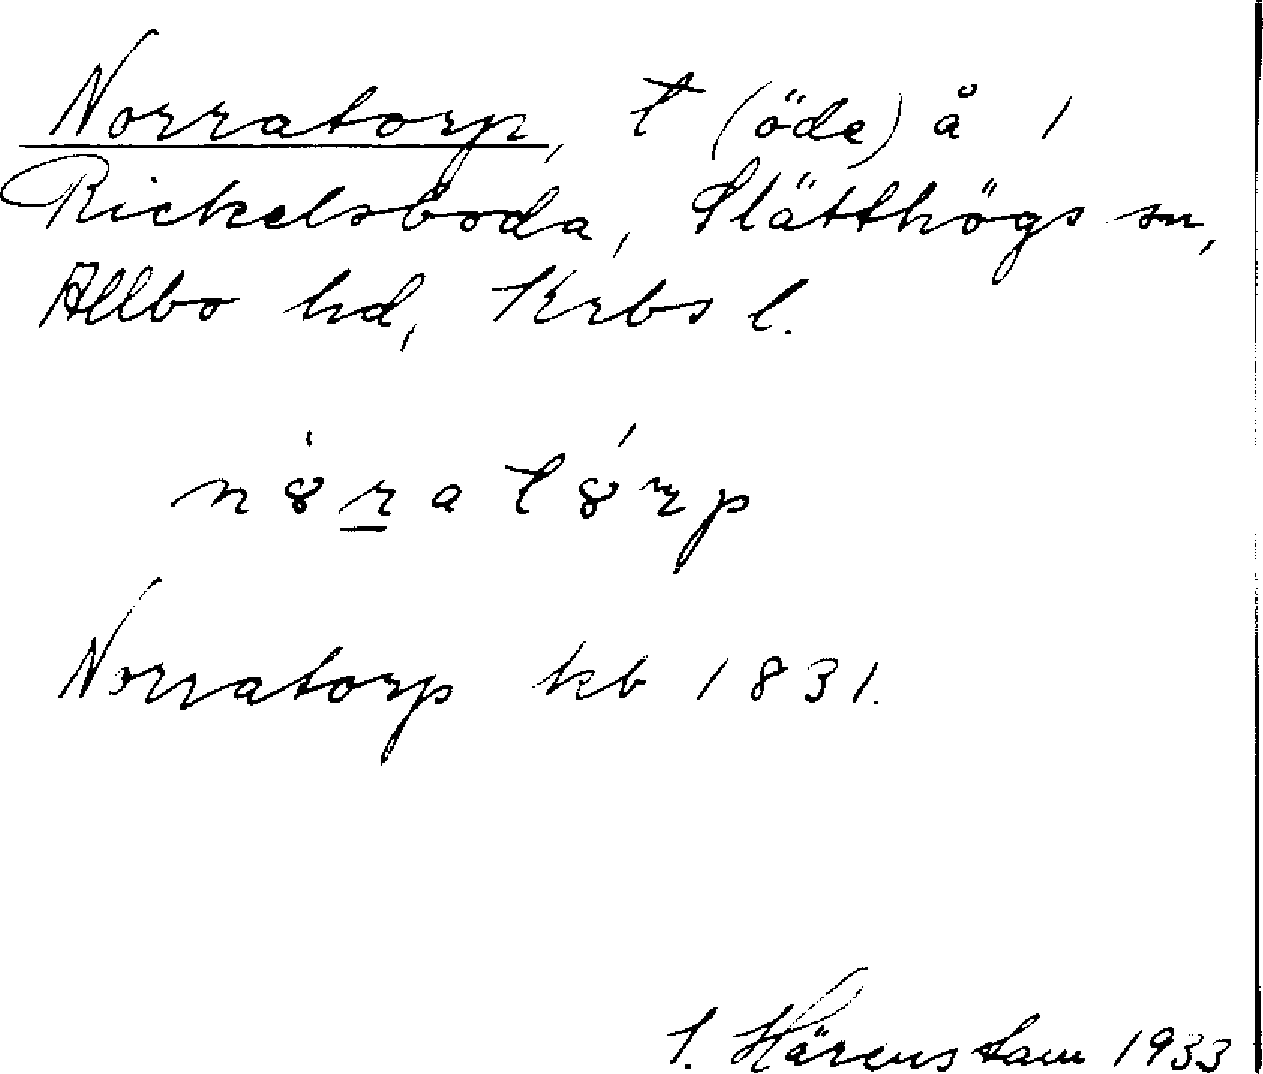 Norratorp, t (öde) å 1
Rickelsboda, Slätthögs sn,
Allbo hd, Krbs l.
nȯ̀ratórp
Norratorp kb 1831.
S. Härenstam 1933